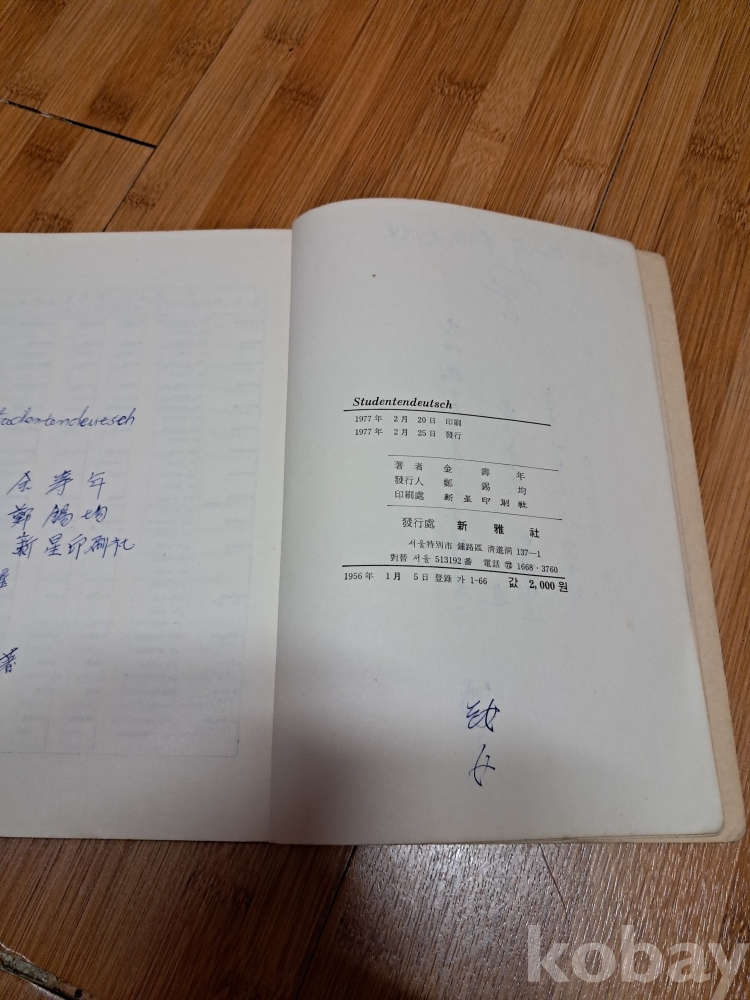 tudentendeutsch
金 壽 年
鄭 錫 均
新星印刷社
著
Studentendeutsch
1977年 2月 20日 印刷
1977年 2月 25日 發行
著者 金壽年
發行人 鄭錫均
印刷處 新星印刷社
發行處 新雅社
서울特別市 鍾路區 清進洞 137—1
對替 서울 513192番 電話 ㊆ 1668·3760
1956年 1月 5日 登錄 가 1-66 값 2,000원
kobay